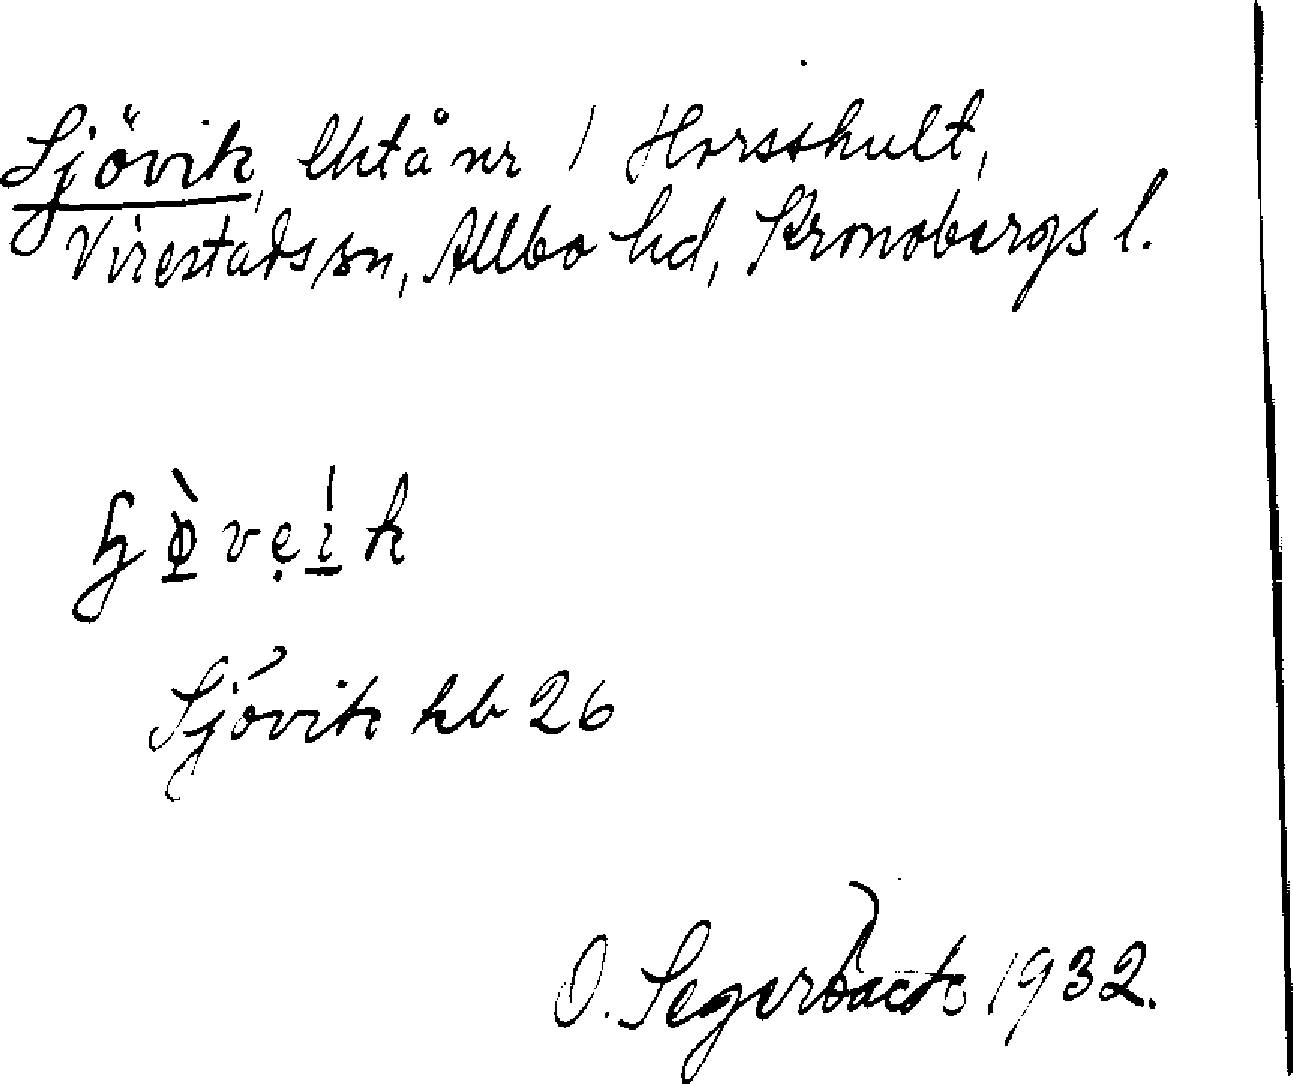 Sjövik, lht å nr 1 Horsshult,
Virestads sn, Allbo hd, Kronobergs l.
Sjövik kb 26
O. Segerbäck 1932.